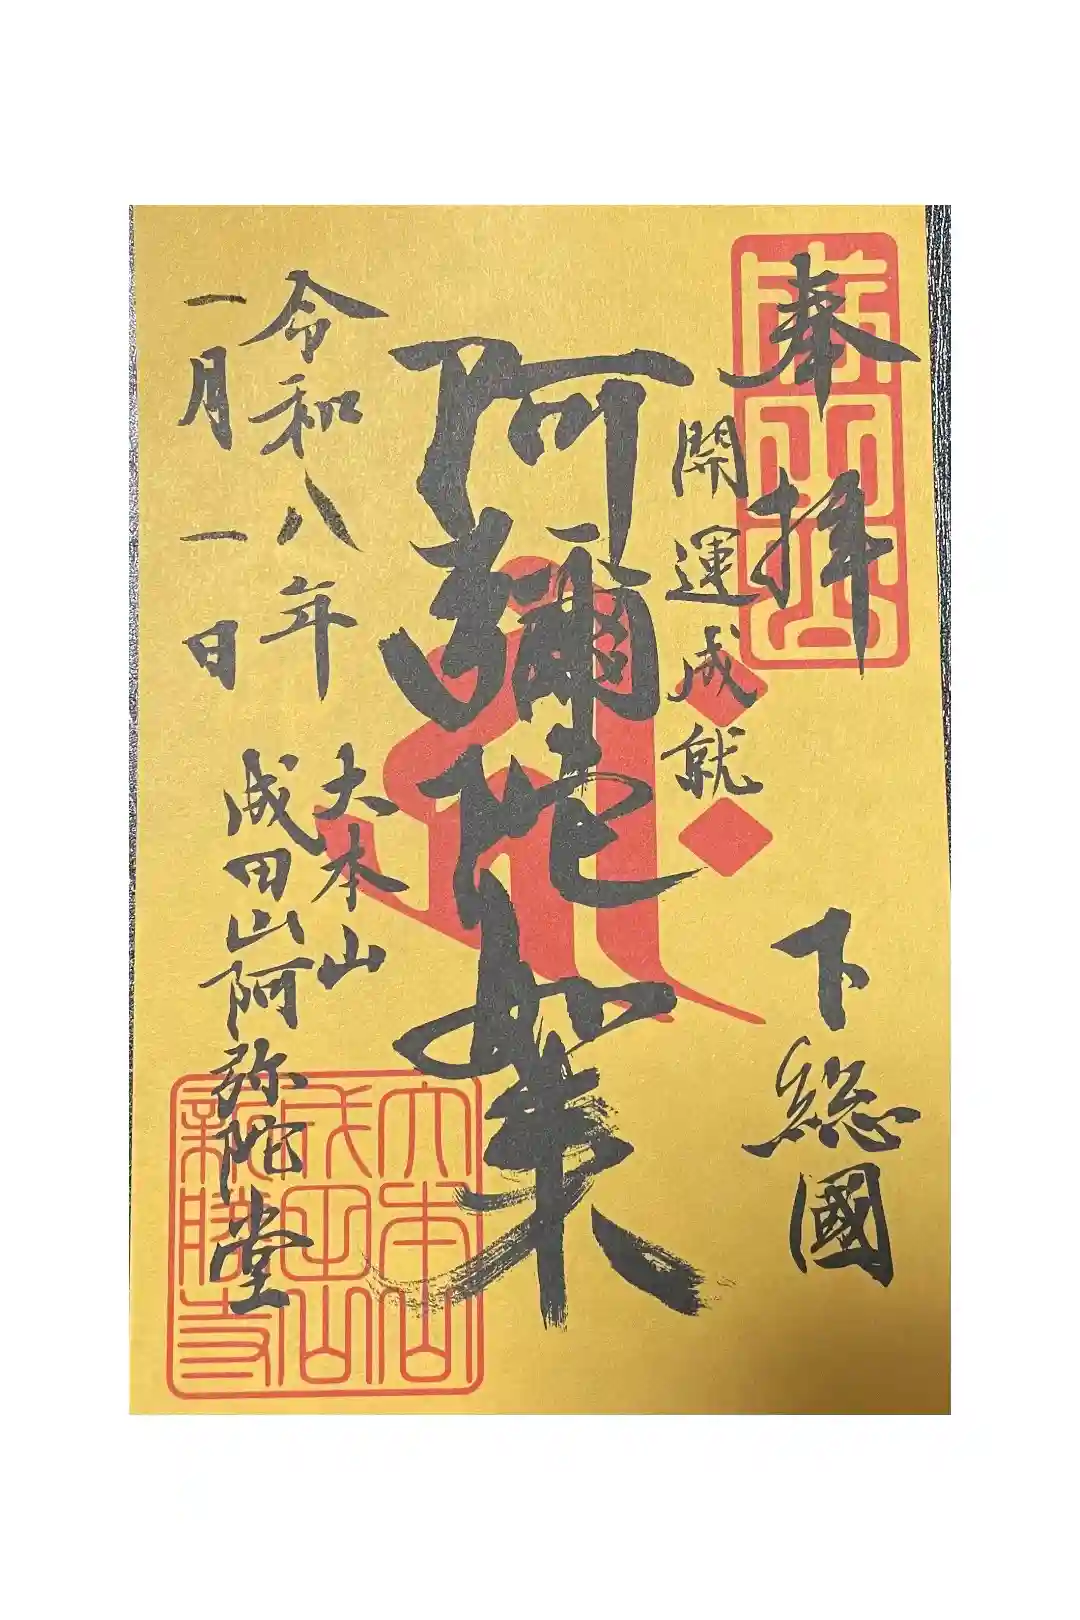 奉拝
開運成就
下総國
阿彌陀如来
令和八年
一月一日
大本山
成田山阿弥陀堂
大本山
成田山
新勝寺